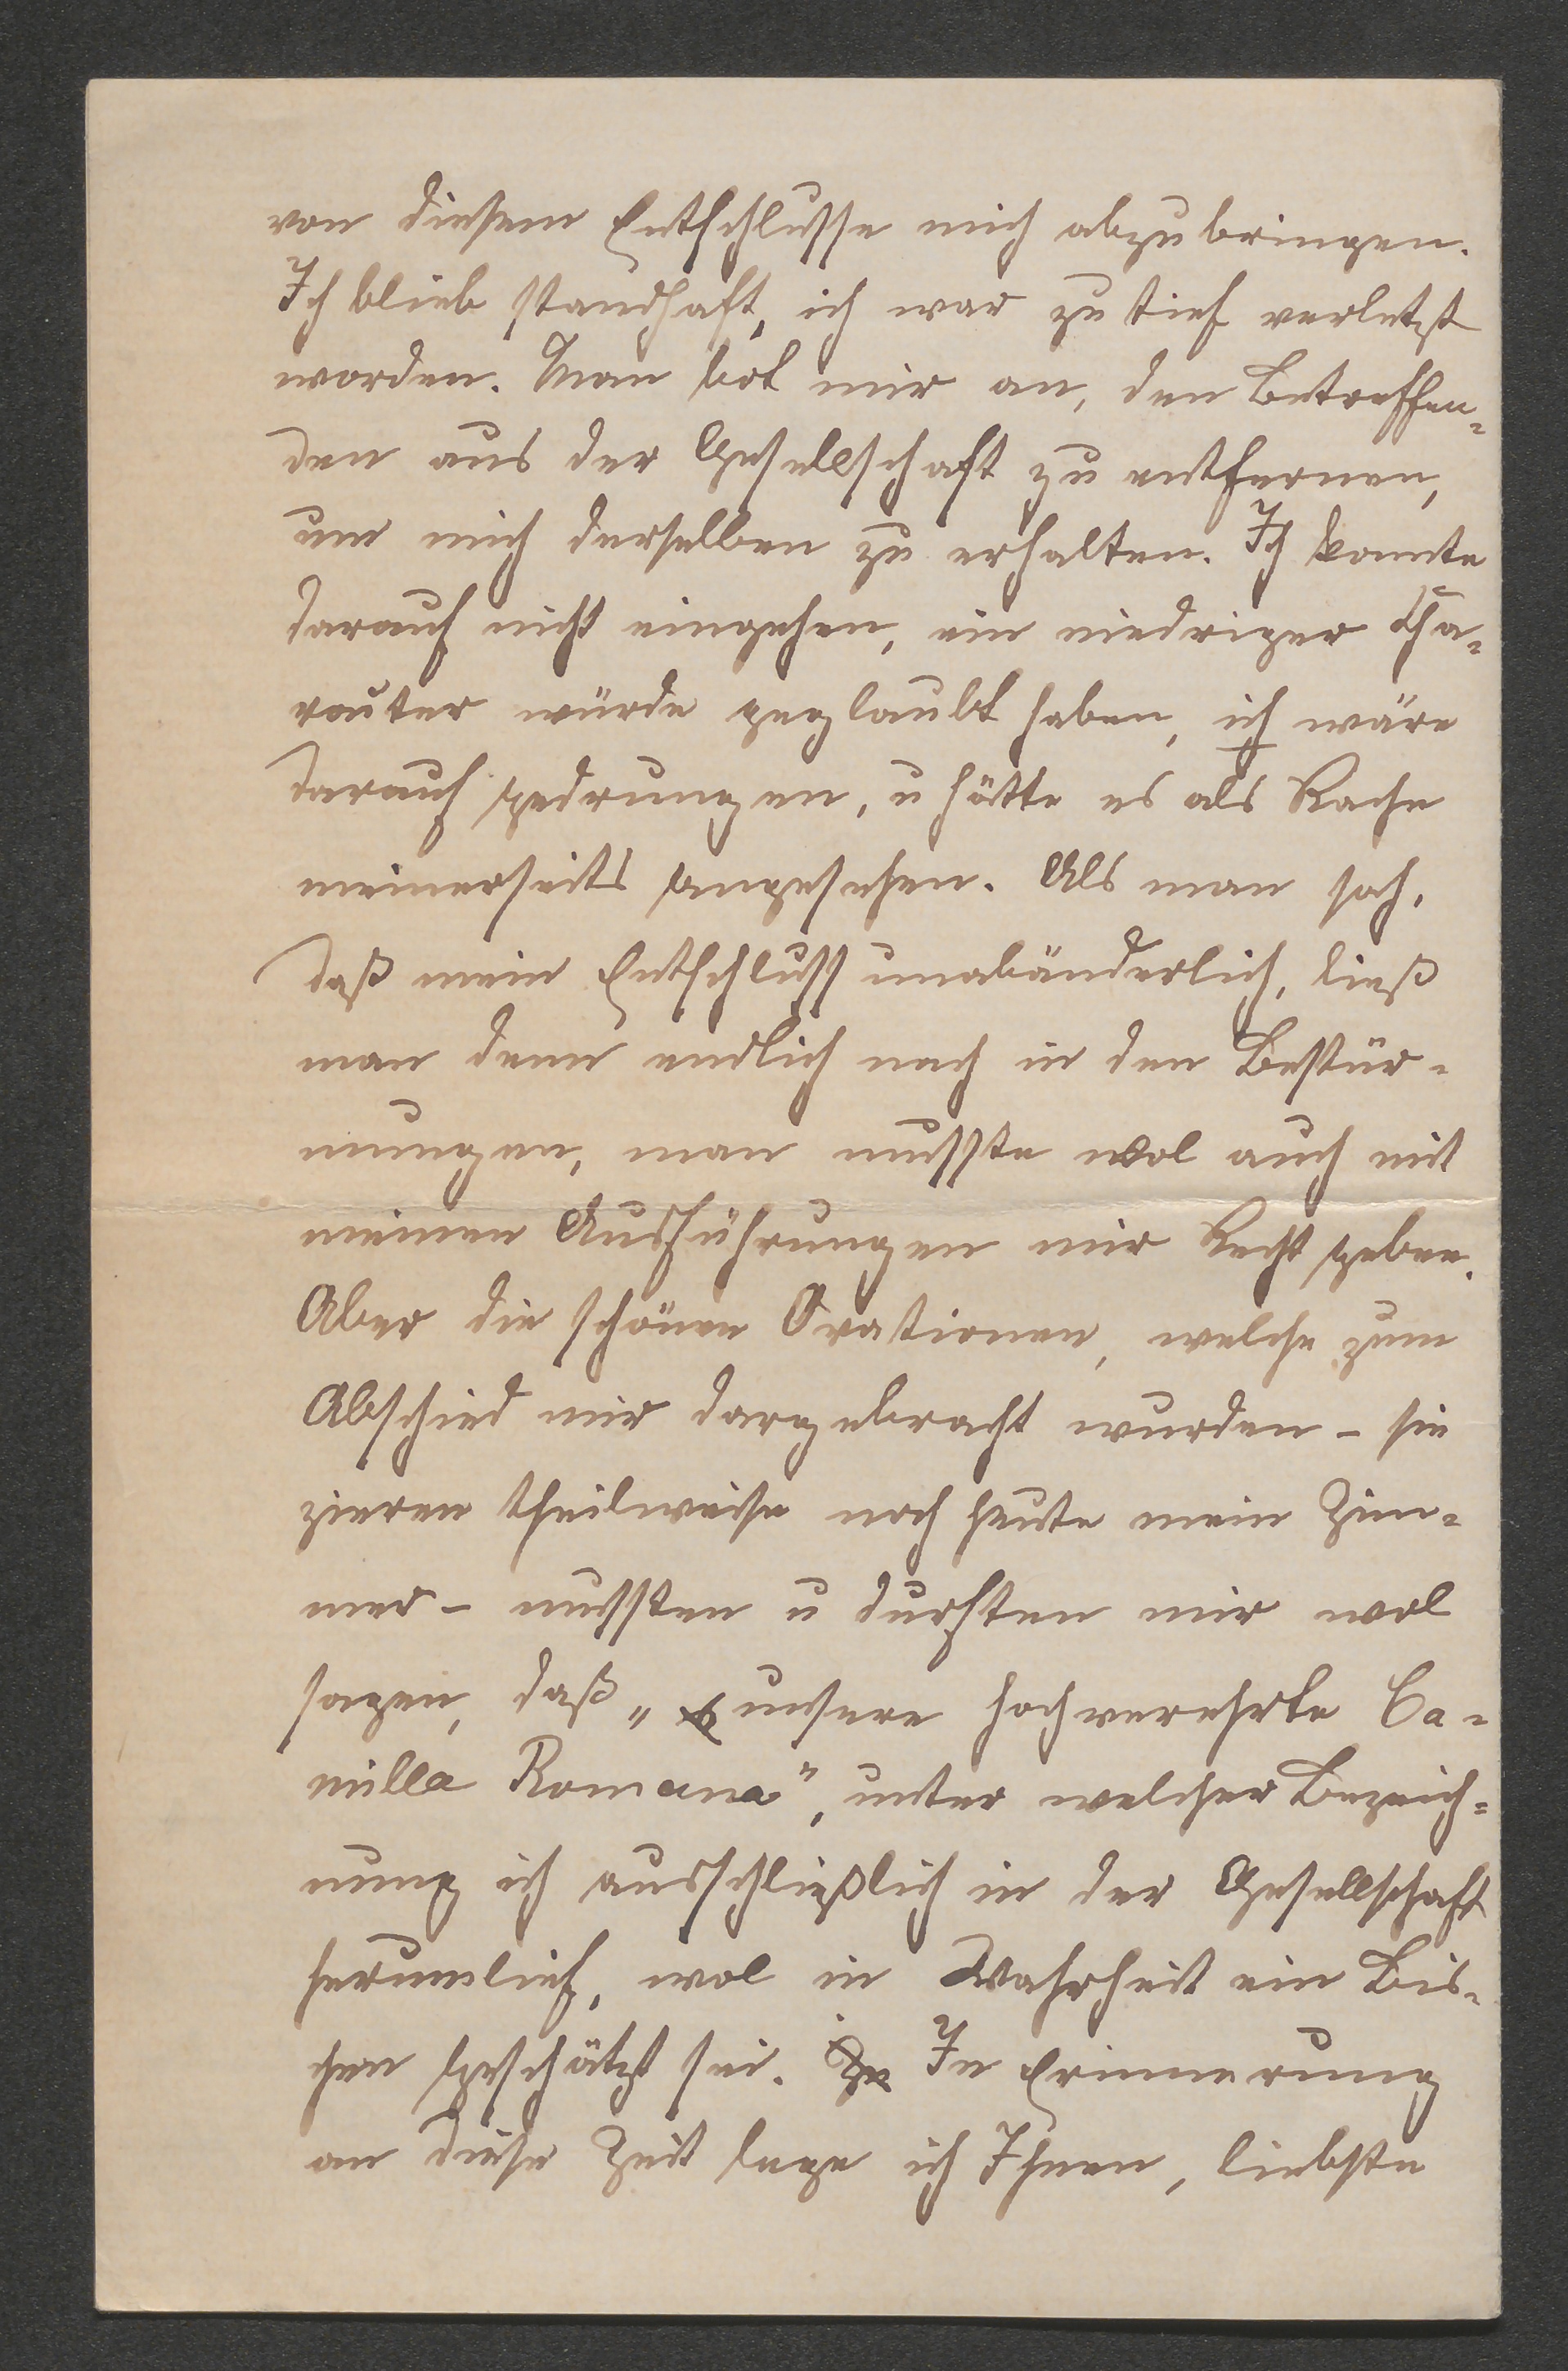 von diesem Entschlusse mich abzubringen.
Ich blieb standhaft, ich war zu tief verletzt
worden. Man bot mir an, den Betreffen-
den aus der Gesellschaft zu entfernen,
um mich derselben zu erhalten. Ich konnte
darauf nicht eingehen, ein niedriger Cha-
rakter würde geglaubt haben, ich wäre
darauf gedrungen, u hätte es als Rache
meinerseits angesehen. Als man sah,
daß mein Entschluss unabänderlich, ließ
man denn endlich nach in den Bestür-
mungen, man musste wol auch mit
meinen Ausführungen mir Recht geben.
Aber die schönen Ovationen, welche zum
Abschied mir dargebracht wurden - sie
zieren theilweise noch heute mein Zim-
mer - mussten u durften mir wol
sagen, daß „unsere hochverehrte Ca-
milla Romana", unter welcher Bezeich-
nung ich ausschließlich in der Gesellschaft
herumlief, wol in Wahrheit ein Bis-
chen geschätzt sei. In Erinnerung
an diese Zeit lege ich Ihnen, liebste